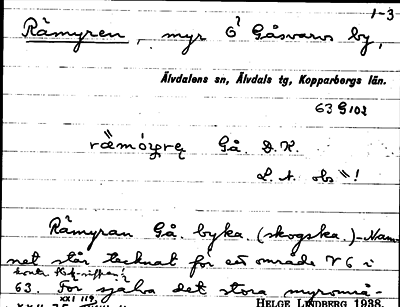 1-3
Rämyren, myr Ö Gåsvarvs by,
Älvdalens sn, Älvdals tg, Kopparbergs län.
63 G 102
Gå. D.K.
L. A. obs ⁿ!
Rämyran Gå. byka. (skogska.) - Nam-
net står tecknat för ett område V G i
63. För själva det stora myrområ-
XXI 119
HELGE LINDBERG 1938.